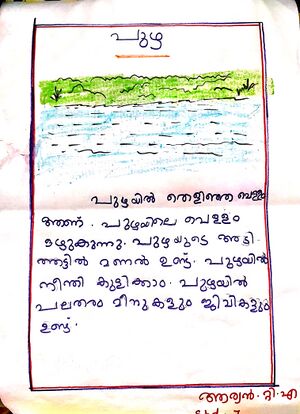 പുഴ
പുഴയിൽ തെളിഞ്ഞ വെള്ളം
ആണ്. പുഴയിലെ വെള്ളം
ഒഴുകുന്നു. പുഴയുടെ അടി
ത്തട്ടിൽ മണൽ ഉണ്ട്. പുഴയിൽ
നീന്തി കുളിക്കാം. പുഴയിൽ
പലതരം മീനുകളും ജീവികളും
ഉണ്ട്.
ആര്യൻ. റ്റി. എ